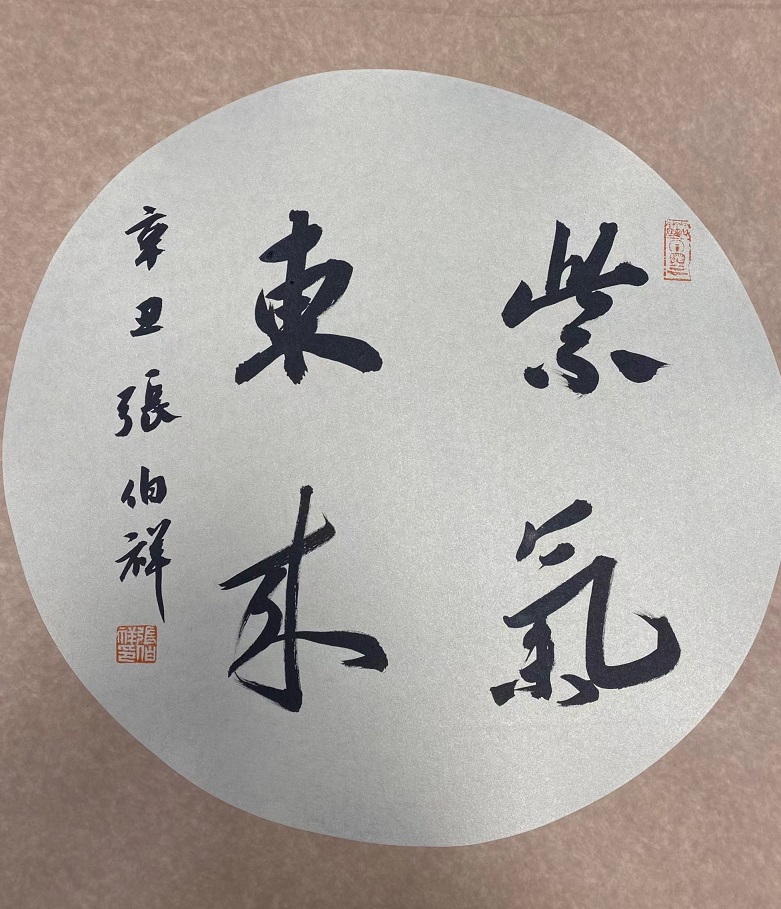 紫氣
東來
辛丑張伯祥
張伯祥印